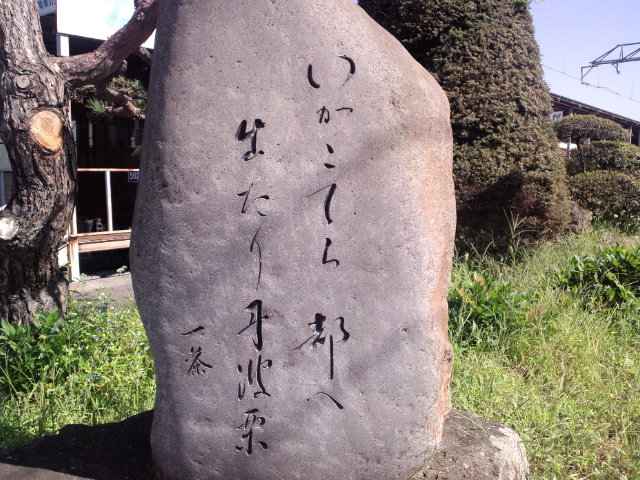 いがこてら都へ
出たり丹波栗
一茶